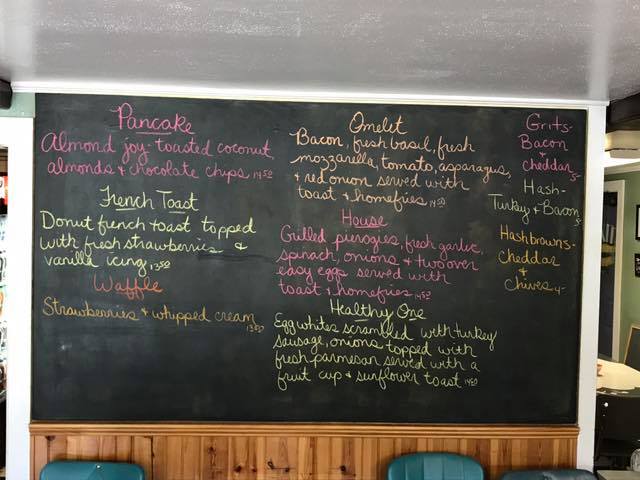 Pancake
Almond joy-toasted coconut,
almonds & chocolate chips 14.50
French Toast
Donut french toast topped
with fresh strawberries &
vanilla icing 13.50
Waffle
Strawberries & whipped cream
13.50
Omelet
Bacon, fresh basil, fresh
mozzarella, tomato, asparagus,
& red onion served with
toast & homefries 14.50
House
Grilled pierogies, fresh garlic,
spinach, onions & two over
easy eggs served with
toast & homefries 14.50
Healthy One
Egg whites scrambled with turkey
sausage, onions topped with
fresh parmesan served with a
fruit cup & sunflower toast 14.50
Grits-
Bacon
&
cheddar 5-
Hash-
Turkey & Bacon
5-
Hashbrowns-
Cheddar
&
Chives 4-